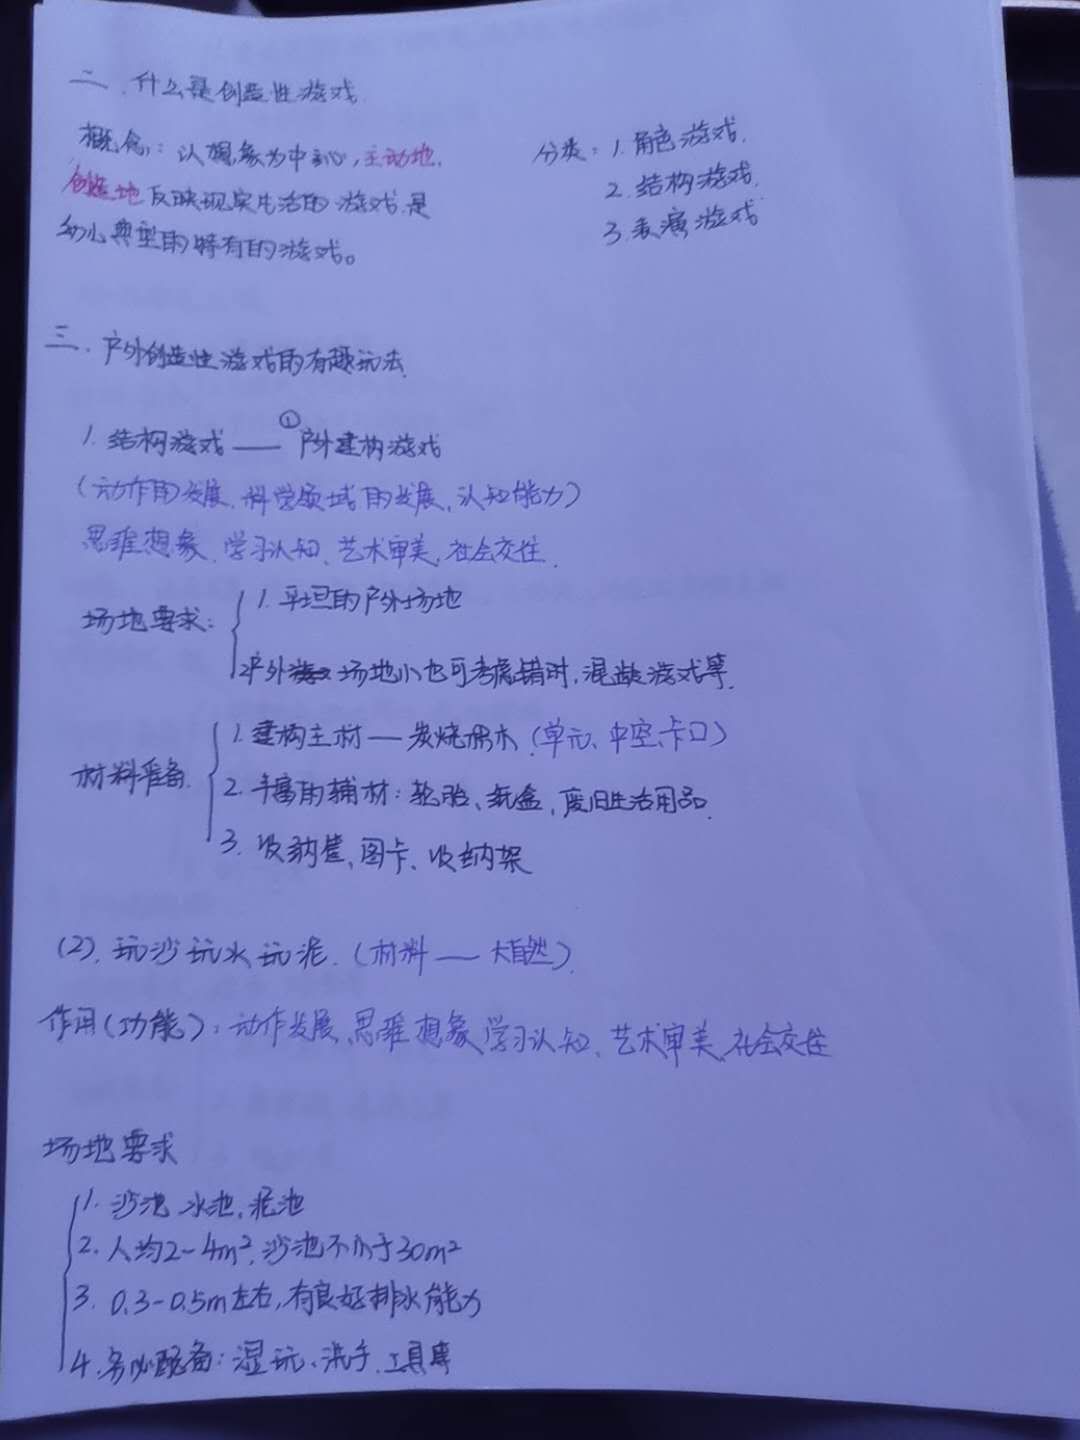 二、什么是创造性游戏
概念：以想象为中心，主动地，
创造地反映现实生活的游戏，是
幼儿典型的特有的游戏。
分类：1.角色游戏.
2.结构游戏.
3.表演游戏
三、户外创造性游戏的有趣玩法
1.结构游戏——①户外建构游戏
（动作的发展、科学领域的发展、认知能力）
思维想象、学习认知、艺术审美、社会交往.
场地要求：
1.平坦的户外场地
2.户外场地小也可考虑错时，混龄游戏等.
材料准备
1.建构主材—炭烧积木（单元、中空、卡口）
2.丰富的辅材：轮胎、纸盒、废旧生活用品.
3.收纳筐、图卡、收纳架
(2).玩沙玩水玩泥.（材料—大自然）
作用（功能）：动作发展、思维想象、学习认知、艺术审美、社会交往
场地要求
1.沙池、水池、泥池
2.人均2-4m²,沙池不小于30m²
3.0.3-0.5m左右,有良好排水能力
4.务必配备：湿玩、洗手、工具库